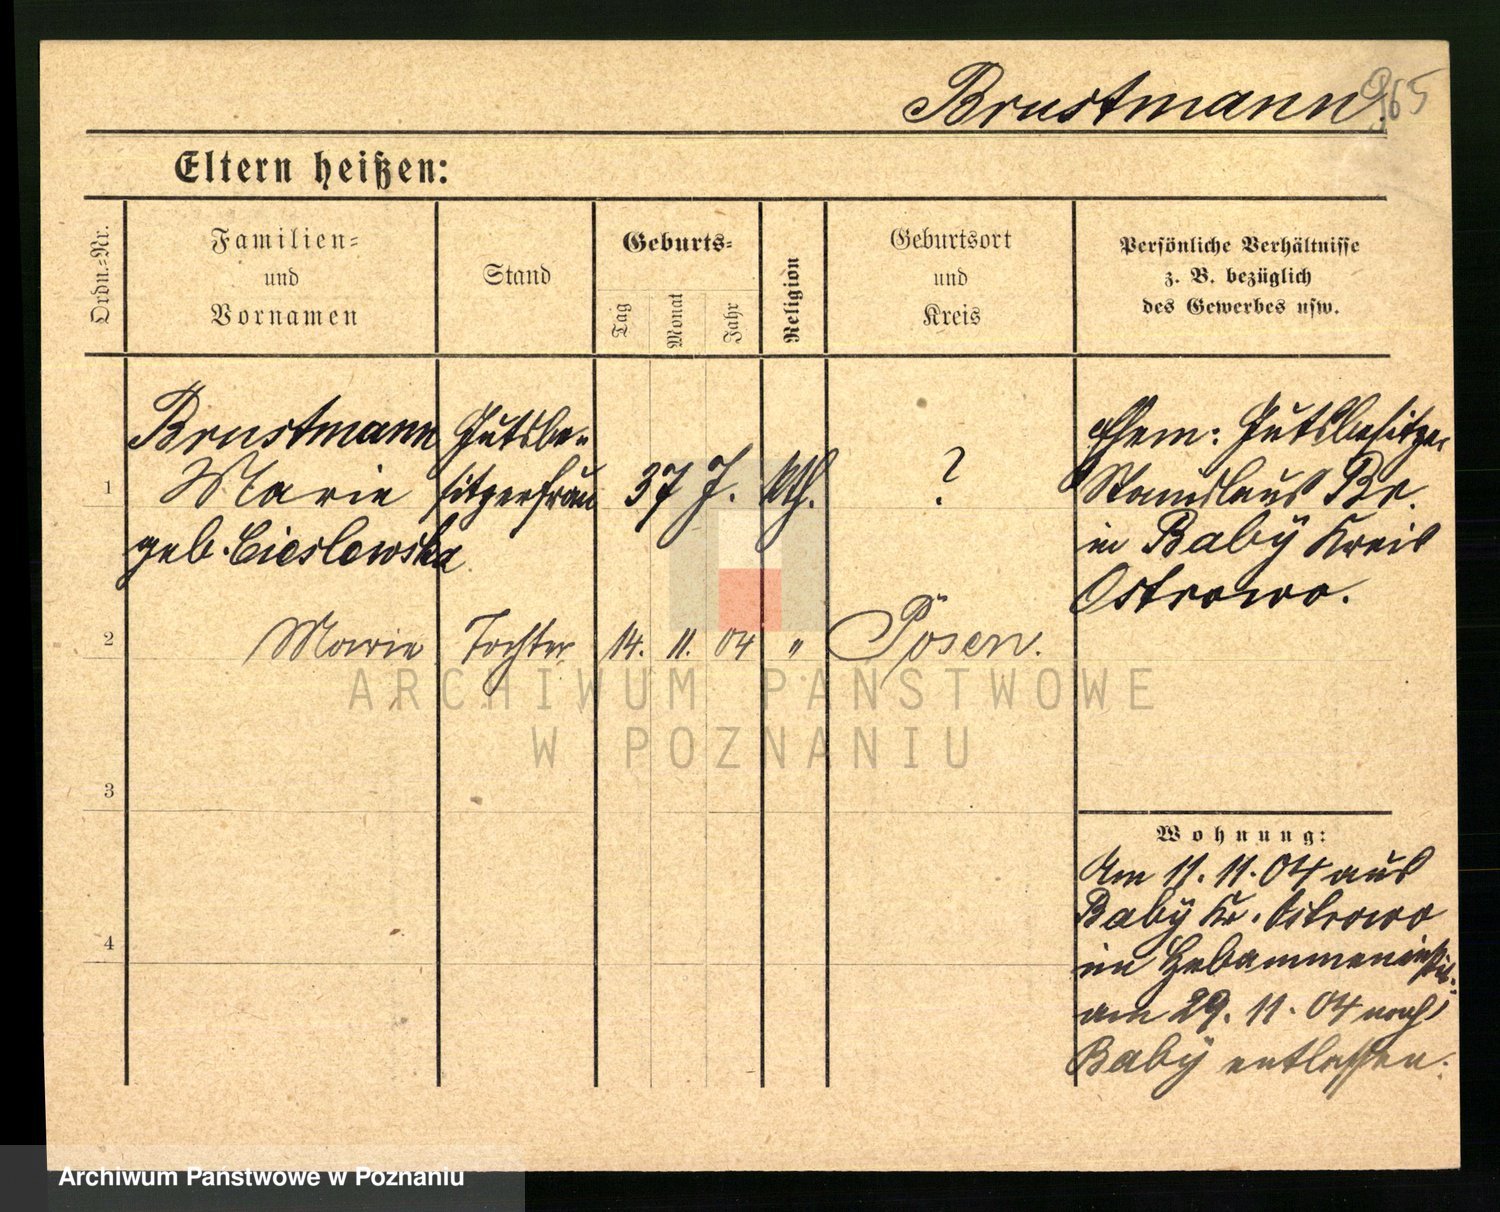 Brustmann.
965
Eltern heißen:
Ordn.-Nr.
Familien-
und
Vornamen
Stand
Geburts-
Tag
Monat
Jahr
Religion
Geburtsort
und
Kreis
Persönliche Verhältnisse
z. B. bezüglich
des Gewerbes usw.
1
Brustmann
Marie
geb. Cieslewska
Gutsbe-
sitzerfrau
37 J.
kth.
?
Ehem: Gutsbesitzer
Stanislaus Br.
in Baby Kreis
Ostrowo.
2
Marie
Tochter
14.
11.
04
"
Posen.
3
4
Wohnung:
Am 11. 11. 04 aus
Baby Kr. Ostrowo
im Hebammeninstit.
am 29. 11. 04 nach
Baby entlassen.
ARCHIWUM PAŃSTWOWE
W POZNANIU
Archiwum Państwowe w Poznaniu